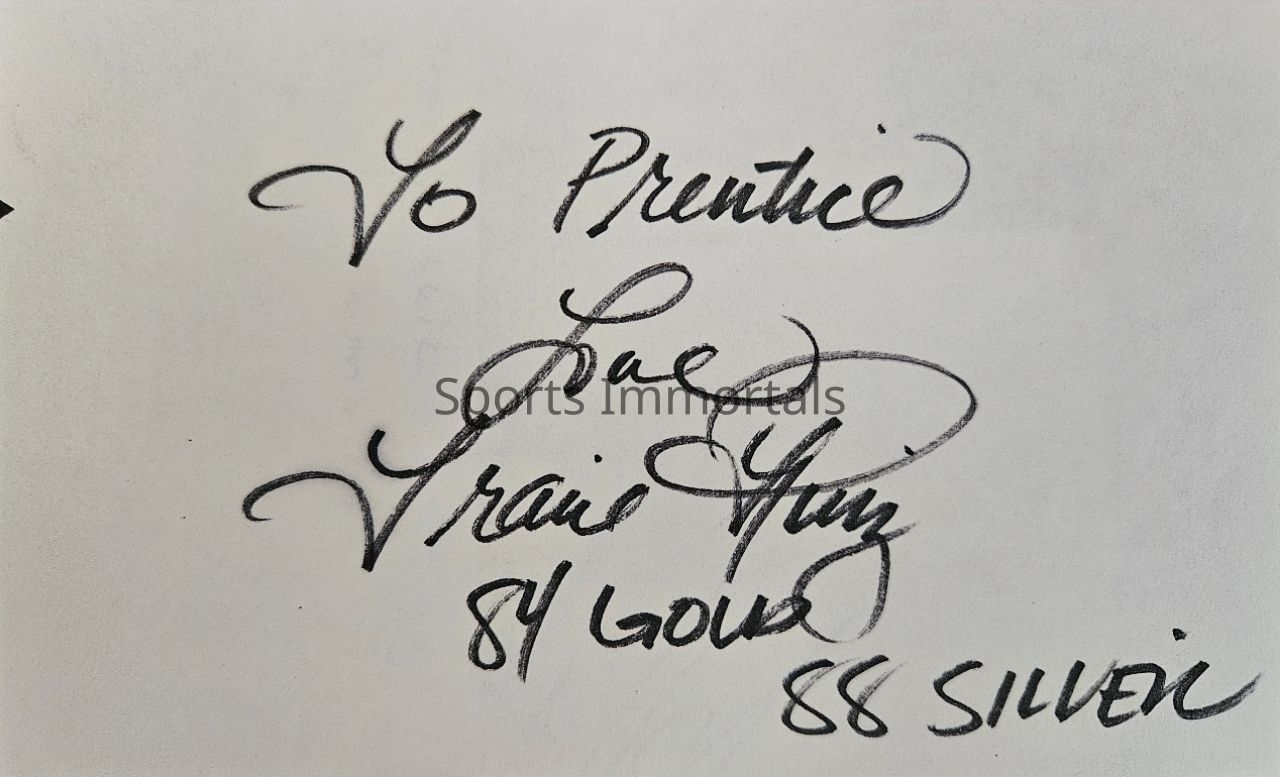 To Prentice
Love
Sports Immortals
Tracie Ruiz
84 GOLD
88 SILVER